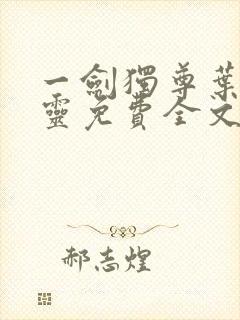 一劍獨尊葉
靈免費全文
郝志煌